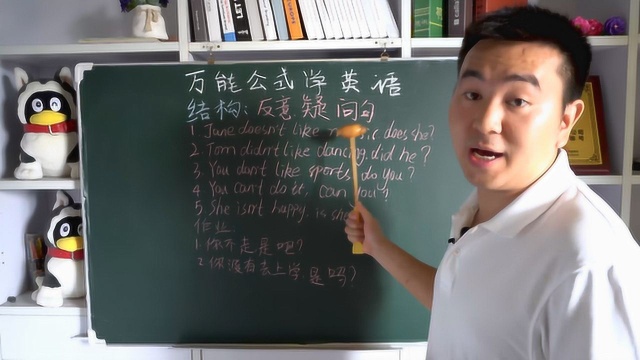 万能公式学英语
结构:反意疑问句
1. June doesn't like ic does she?
2. Tom didn't like dancing, did he?
3. You don't like sports, do you?
4 You can't do it, can you?
5 She isn't happy. is she
作业:
1.你不走是吧?
2.你没有去上学,是吗?